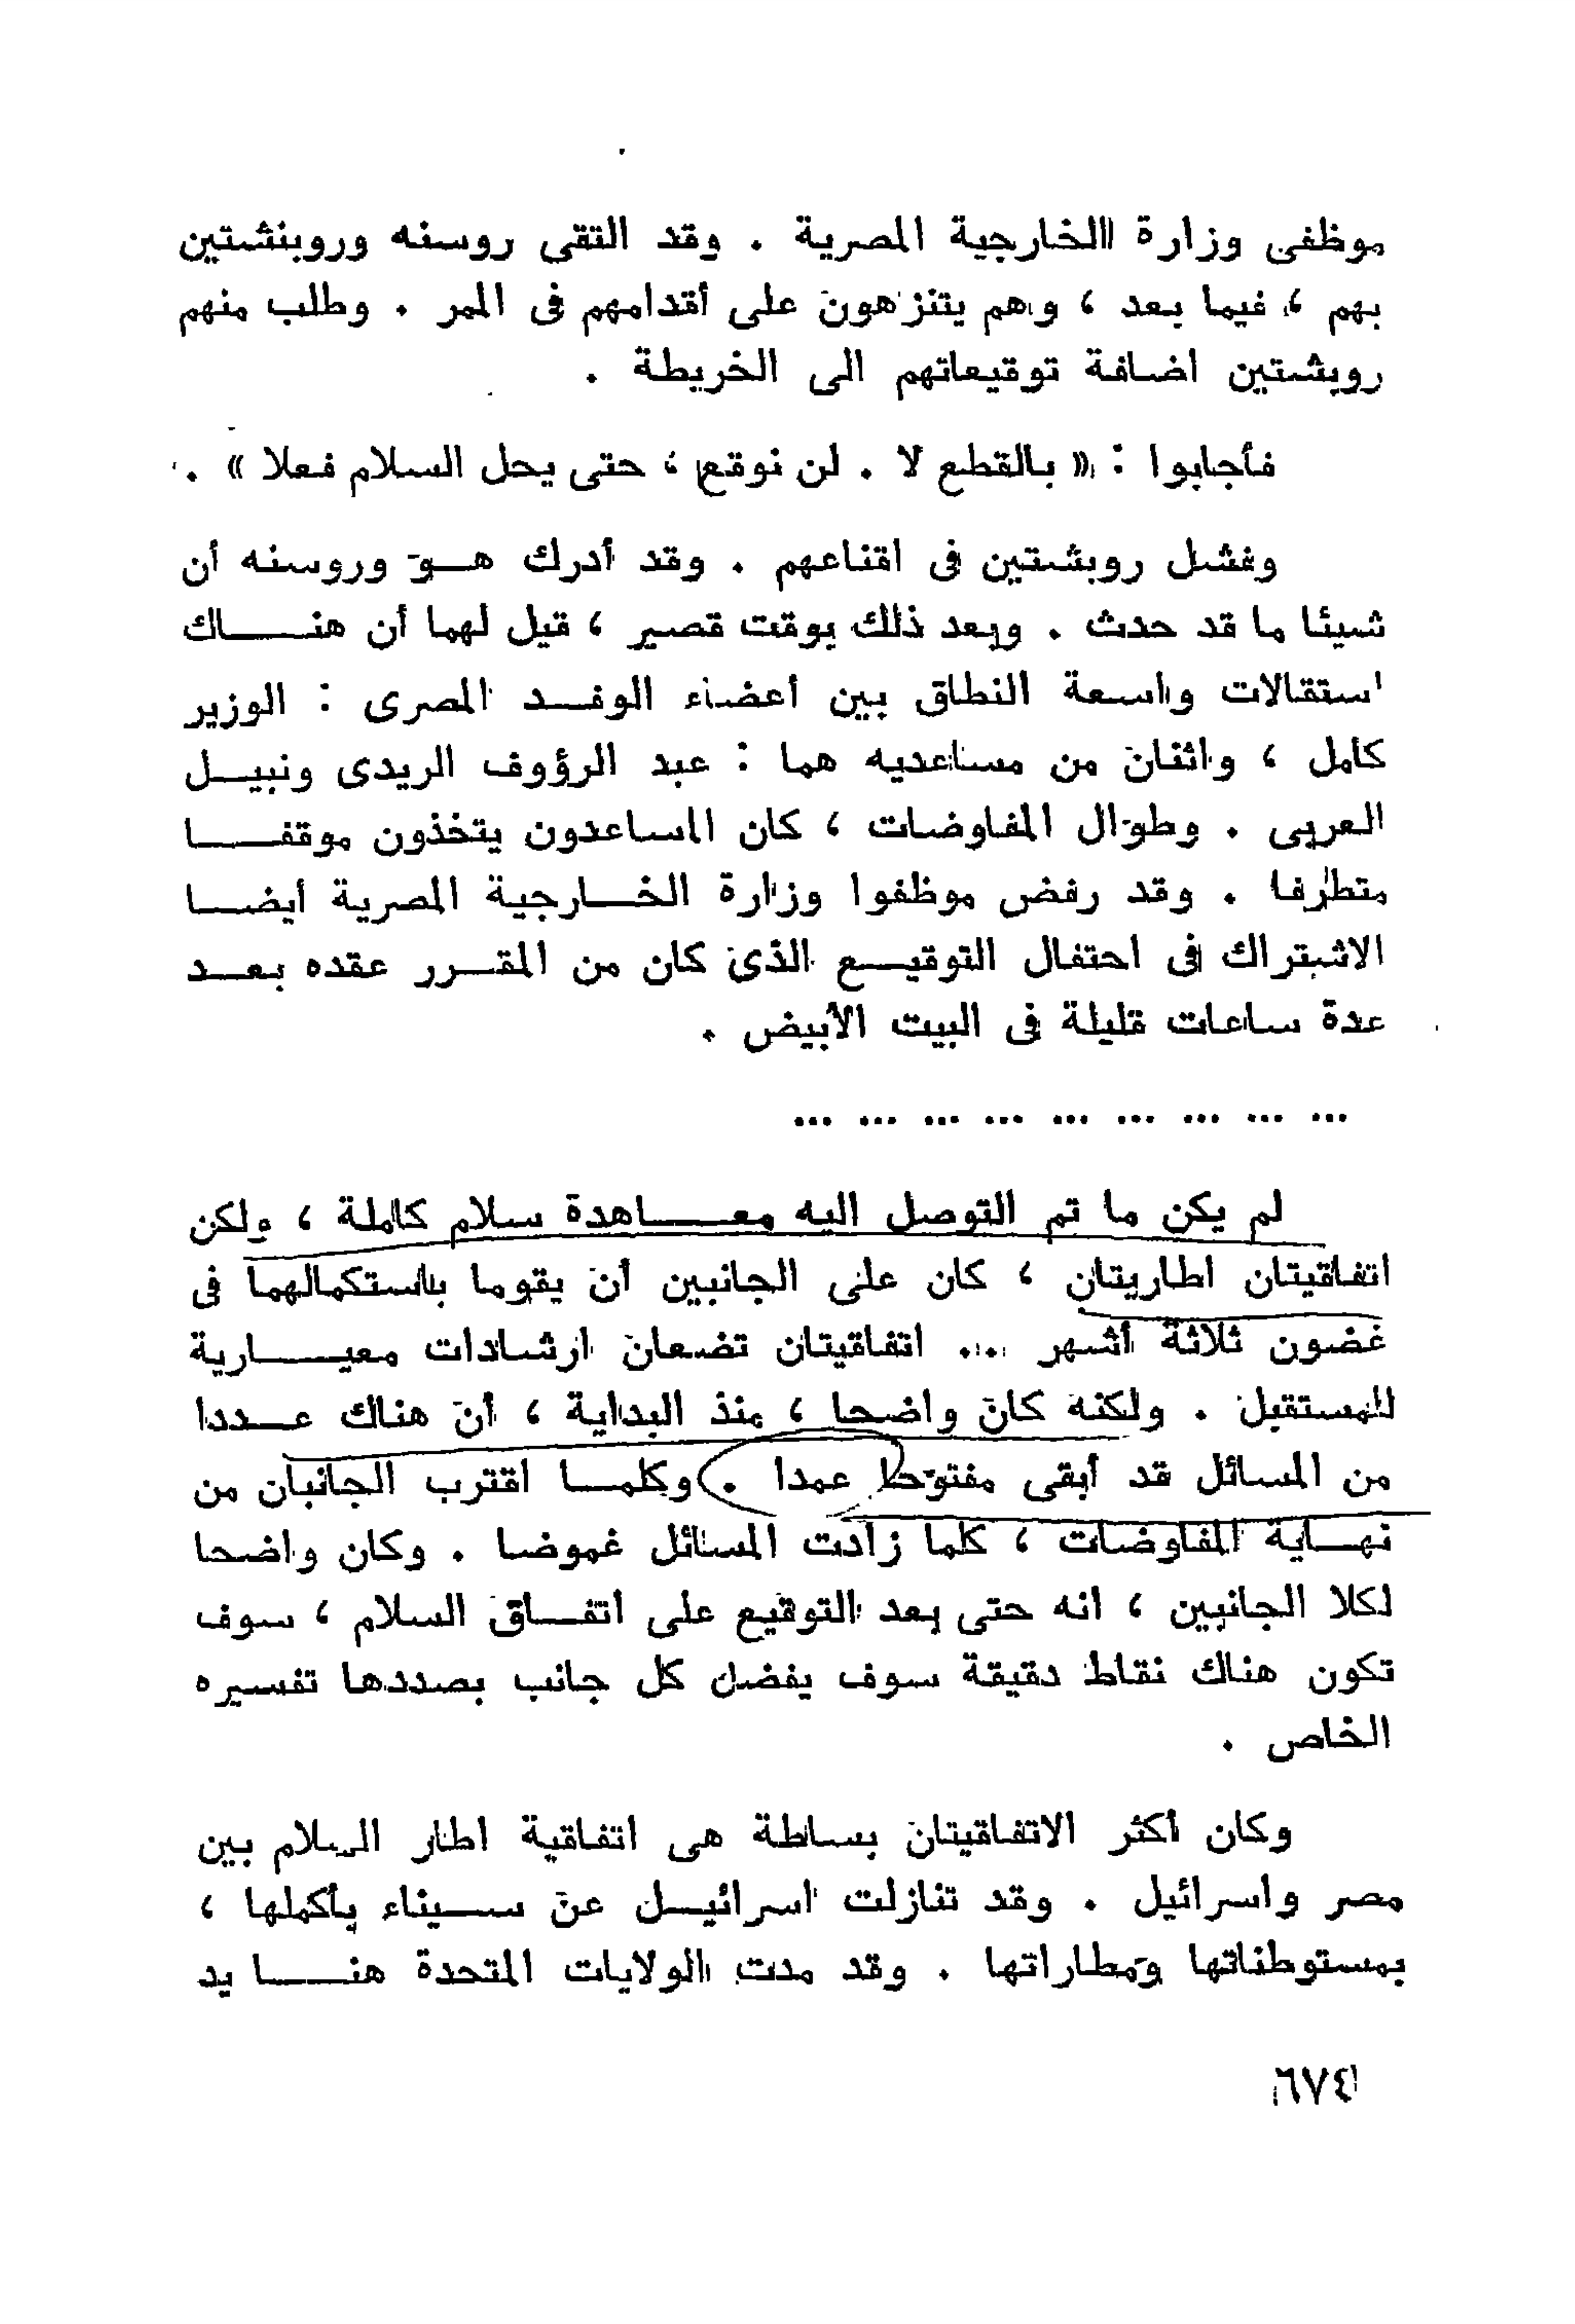 موظفى وزارة الخارجية المصرية . وقد التقى روسنه وروبنشتين
بهم ، فيما بعد ، وهم يتنزهون على أقدامهم فى الممر . وطلب منهم
روبشتين اضافة توقيعاتهم الى الخريطة .
فأجابوا : « بالقطع لا . لن نوقع ، حتى يحل السلام فعلا » .
وفشل روبشتين فى اقناعهم . وقد أدرك هو وروسنه أن
شيئا ما قد حدث . وبعد ذلك بوقت قصير ، قيل لهما أن هناك
استقالات واسعة النطاق بين أعضاء الوفد المصرى : الوزير
كامل ، واثنان من مساعديه هما : عبد الرؤوف الريدى ونبيل
العربى . وطوال المفاوضات ، كان المساعدون يتخذون موقفا
متطرفا . وقد رفض موظفوا وزارة الخارجية المصرية أيضا
الاشتراك فى احتفال التوقيع الذى كان من المقرر عقده بعد
عدة ساعات قليلة فى البيت الأبيض .
... ... ... ... ... ... ... ... ...
لم يكن ما تم التوصل اليه معاهدة سلام كاملة ، ولكن
اتفاقيتان اطاريتان ، كان على الجانبين أن يقوما باستكمالهما فى
غضون ثلاثة أشهر ... اتفاقيتان تضعان ارشادات معيارية
للمستقبل . ولكنه كان واضحا ، منذ البداية ، أن هناك عددا
من المسائل قد أبقى مفتوحا عمدا . وكلما اقترب الجانبان من
نهاية المفاوضات ، كلما زادت المسائل غموضا . وكان واضحا
لكلا الجانبين ، انه حتى بعد التوقيع على اتفاق السلام ، سوف
تكون هناك نقاط دقيقة سوف يفضل كل جانب بصددها تفسيره
الخاص .
وكان أكثر الاتفاقيتان بساطة هى اتفاقية اطار السلام بين
مصر واسرائيل . وقد تنازلت اسرائيل عن سيناء بأكملها ،
بمستوطناتها ومطاراتها . وقد مدت الولايات المتحدة هنا يد
٦٧٤